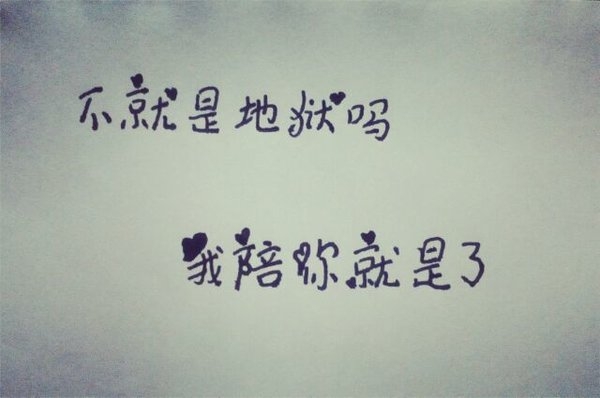 不就是地狱吗
我陪你就是了